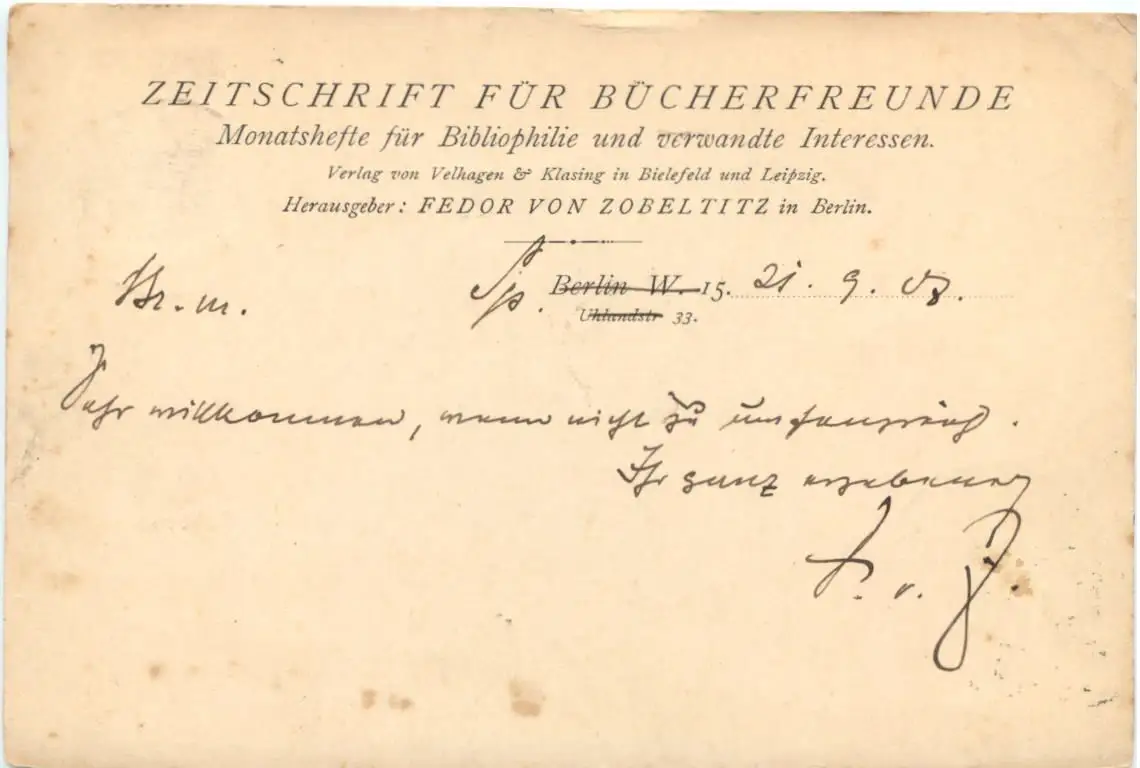 ZEITSCHRIFT FÜR BÜCHERFREUNDE
Monatshefte für Bibliophilie und verwandte Interessen.
Verlag von Velhagen & Klasing in Bielefeld und Leipzig.
Herausgeber: FEDOR VON ZOBELTITZ in Berlin.
Sp. Berlin W. 15. 21. 9. 03.
Uhlandstr 33.
Sehr willkommen, wenn nicht zu umfangreich.
Ihr ganz ergebener
F. v. Z.